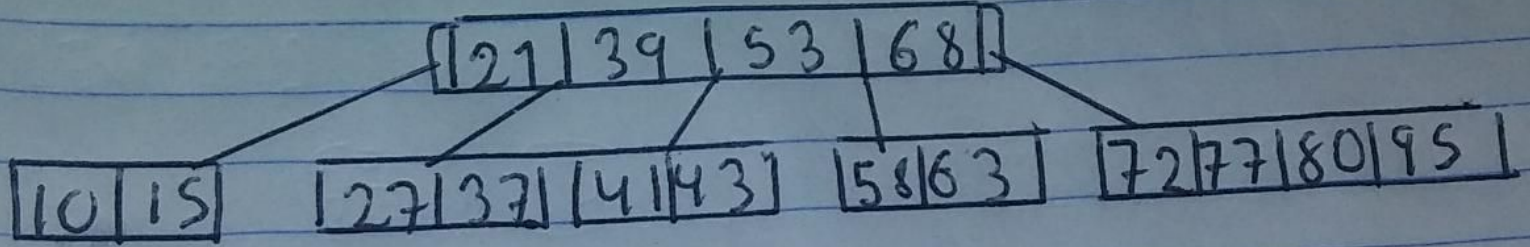 21 | 39 | 53 | 68
10 | 15 27 | 37 41 | 43 58 | 63 72 | 77 | 80 | 95